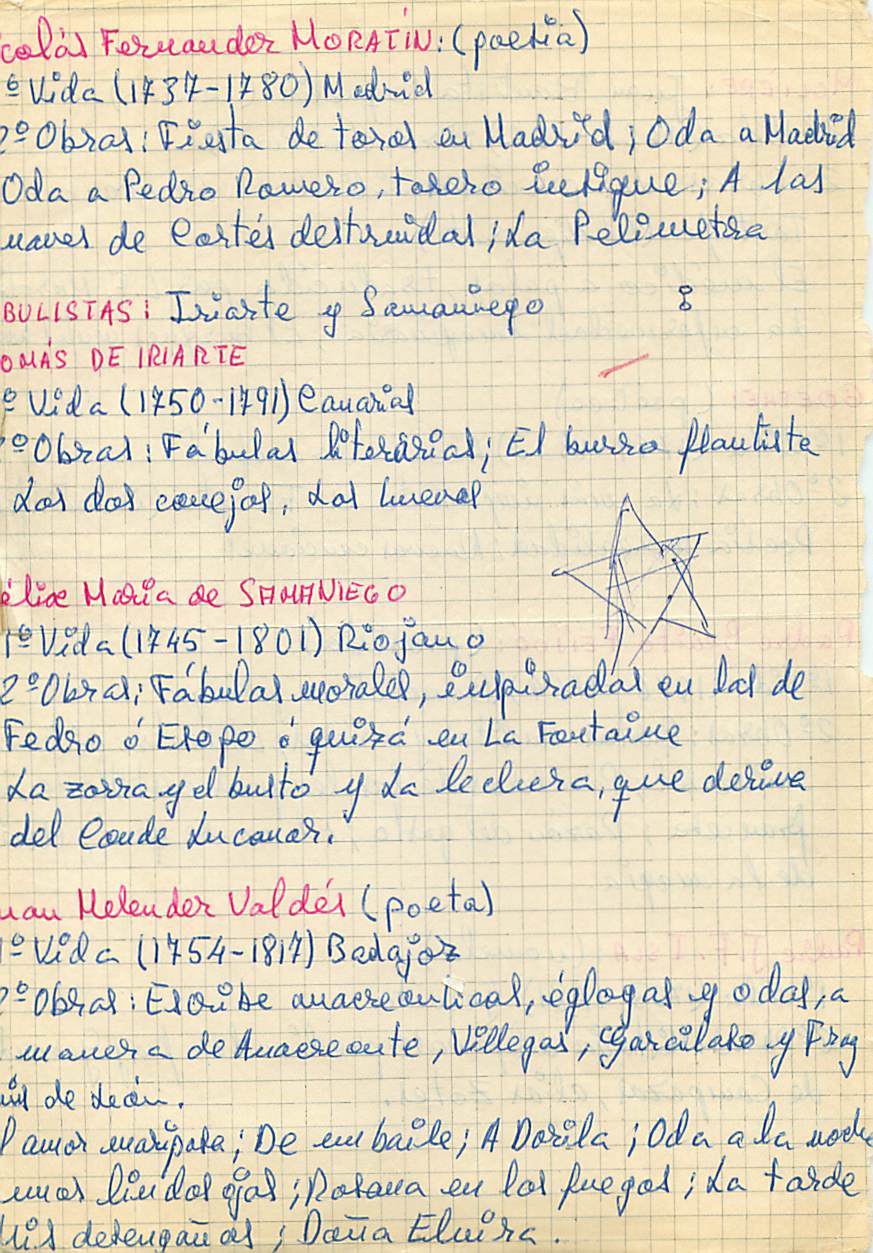 colás Fernandez MORATÍN: (poesia)
º Vida (1737-1780) Madrid
2º Obras: Fiesta de toros en Madrid; Oda a Madrid
Oda a Pedro Romero, torero insigne; A las
naves de Cortés destruidas; La Petimetra
BULISTAS: Iriarte y Samaniego
OMÁS DE IRIARTE
º Vida (1750-1791) Canarias
2º Obras: Fábulas literárias; El burro flautista
Los dos conejos, Los huevos
élix Maria de SAMANIEGO
1º Vida (1745-1801) Riojano
2º Obras; Fábulas morales, inspiradas en las de
Fedro ó Esopo ó quizá en La Fontaine
La zorra y el busto y La lechera, que deriva
del Conde Lucanor.
uan Melendez Valdés (poeta)
1º Vida (1754-1817) Badajoz
2º Obras: Escribe anacreonticas, églogas y odas, a
manera de Anacreonte, Villegas, Garcilaso y Fray
uis de León.
l amor mariposa; De un baile; A Dorila; Oda a la noche
unos lindos ojos; Rosana en los fuegos; La tarde
Mis desengaños; Doña Elvira.